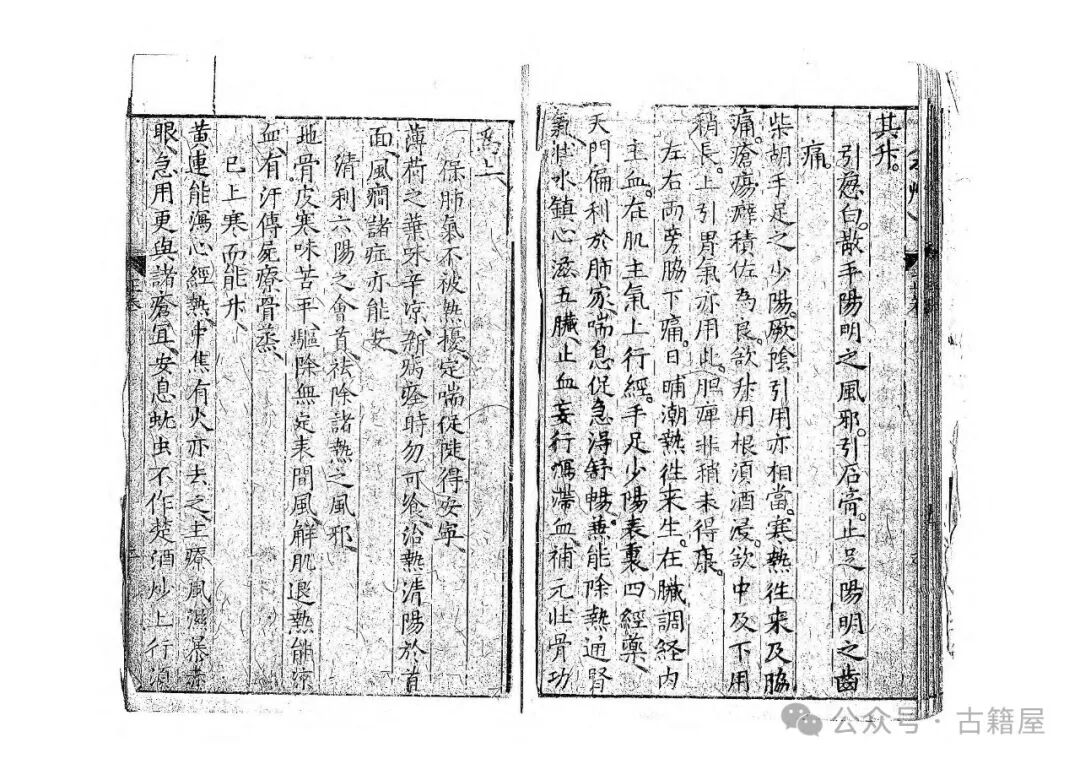 其升。
引葱白。散手陽明之風邪。引石膏。止足陽明之齒
痛。
柴胡手足之少陽。厥陰引用亦相當。寒熱往來及脇
痛。瘡瘍癖積佐為良。欲升用根須酒浸。欲中及下用
稍長。上引胃氣亦用此。胆痺非稍未得康。
左右両旁脇下痛。日晡潮熱徃来生。在臟調経内
主血。在肌主氣上行經。手足少陽表裏四經藥、
天門偏利於肺家。喘息促急得舒暢。兼能除熱通腎
氣。水鎮心滋五臟、止血妄行滯血補元壯骨功
為上、
保肺氣不被熱擾、定喘促陡得安寧、
薄荷之葉味辛凉、新病瘥時勿可飡、治熱清陽於首
面、風癎諸症亦能安、
清利六陽之會首、祛除諸熱之風邪、
地骨皮寒味苦平、驅除無定表間風、解肌退熱能凉
血、有汗傳屍療骨蒸、
已上寒而能升、
黄連能瀉心經熱、中焦有火亦去之、主療風濕暴赤
眼、急用更與諸瘡宜、安息蚘虫不作楚、酒炒上行須
公众号·古籍屋